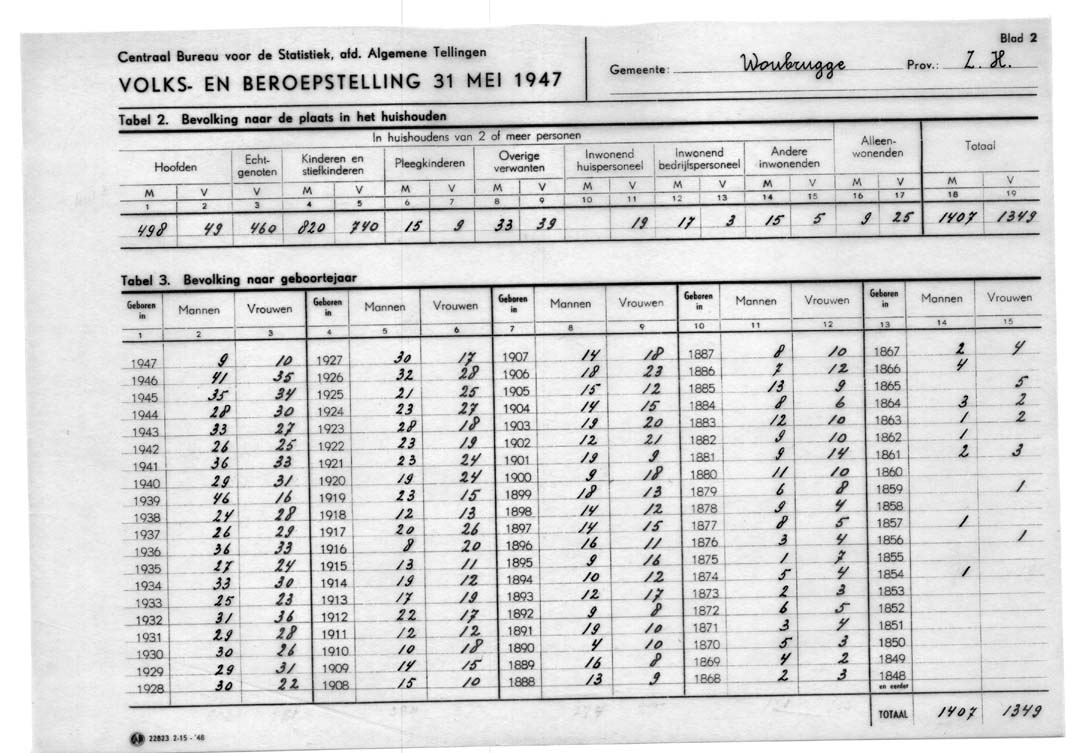 Blad 2
Centraal Bureau voor de Statistiek, afd. Algemene Tellingen
VOLKS- EN BEROEPSTELLING 31 MEI 1947
Gemeente: Woubrugge Prov.: Z. H.
Tabel 2. Bevolking naar de plaats in het huishouden
In huishoudens van 2 of meer personen Alleen-wonenden Totaal
Hoofden Echt-genoten Kinderen en stiefkinderen Pleegkinderen Overige verwanten Inwonend huispersoneel Inwonend bedrijfspersoneel Andere inwonenden
M V V M V M V M V M V M V M V M V M V
1 2 3 4 5 6 7 8 9 10 11 12 13 14 15 16 17 18 19
498 49 460 820 740 15 9 33 39 19 17 3 15 5 9 25 1407 1349
Tabel 3. Bevolking naar geboortejaar
Geboren in Mannen Vrouwen Geboren in Mannen Vrouwen Geboren in Mannen Vrouwen Geboren in Mannen Vrouwen Geboren in Mannen Vrouwen
1 2 3 4 5 6 7 8 9 10 11 12 13 14 15
1947 9 10 1927 30 17 1907 14 18 1887 8 10 1867 2 4
1946 41 35 1926 32 28 1906 18 23 1886 7 12 1866 4
1945 35 34 1925 21 25 1905 15 12 1885 13 9 1865 5
1944 28 30 1924 23 27 1904 14 15 1884 8 6 1864 3 2
1943 33 27 1923 28 18 1903 19 20 1883 12 10 1863 1 2
1942 26 25 1922 23 19 1902 12 21 1882 9 10 1862 1
1941 36 33 1921 23 24 1901 19 9 1881 9 14 1861 2 3
1940 29 31 1920 19 24 1900 9 18 1880 11 10 1860
1939 46 16 1919 23 15 1899 18 13 1879 6 8 1859 1
1938 24 28 1918 12 13 1898 14 12 1878 9 4 1858
1937 26 29 1917 20 26 1897 14 15 1877 8 5 1857 1
1936 36 33 1916 8 20 1896 16 11 1876 3 4 1856 1
1935 27 24 1915 13 11 1895 9 16 1875 1 7 1855
1934 33 30 1914 19 12 1894 10 12 1874 5 4 1854 1
1933 25 23 1913 17 19 1893 12 17 1873 2 3 1853
1932 31 36 1912 22 17 1892 9 8 1872 6 5 1852
1931 29 28 1911 12 12 1891 19 10 1871 3 4 1851
1930 30 26 1910 10 18 1890 4 10 1870 5 3 1850
1929 29 31 1909 14 15 1889 16 8 1869 4 2 1849
1928 30 22 1908 15 10 1888 13 9 1868 2 3 1848 en eerder
TOTAAL 1407 1349
22823 2-15-'48